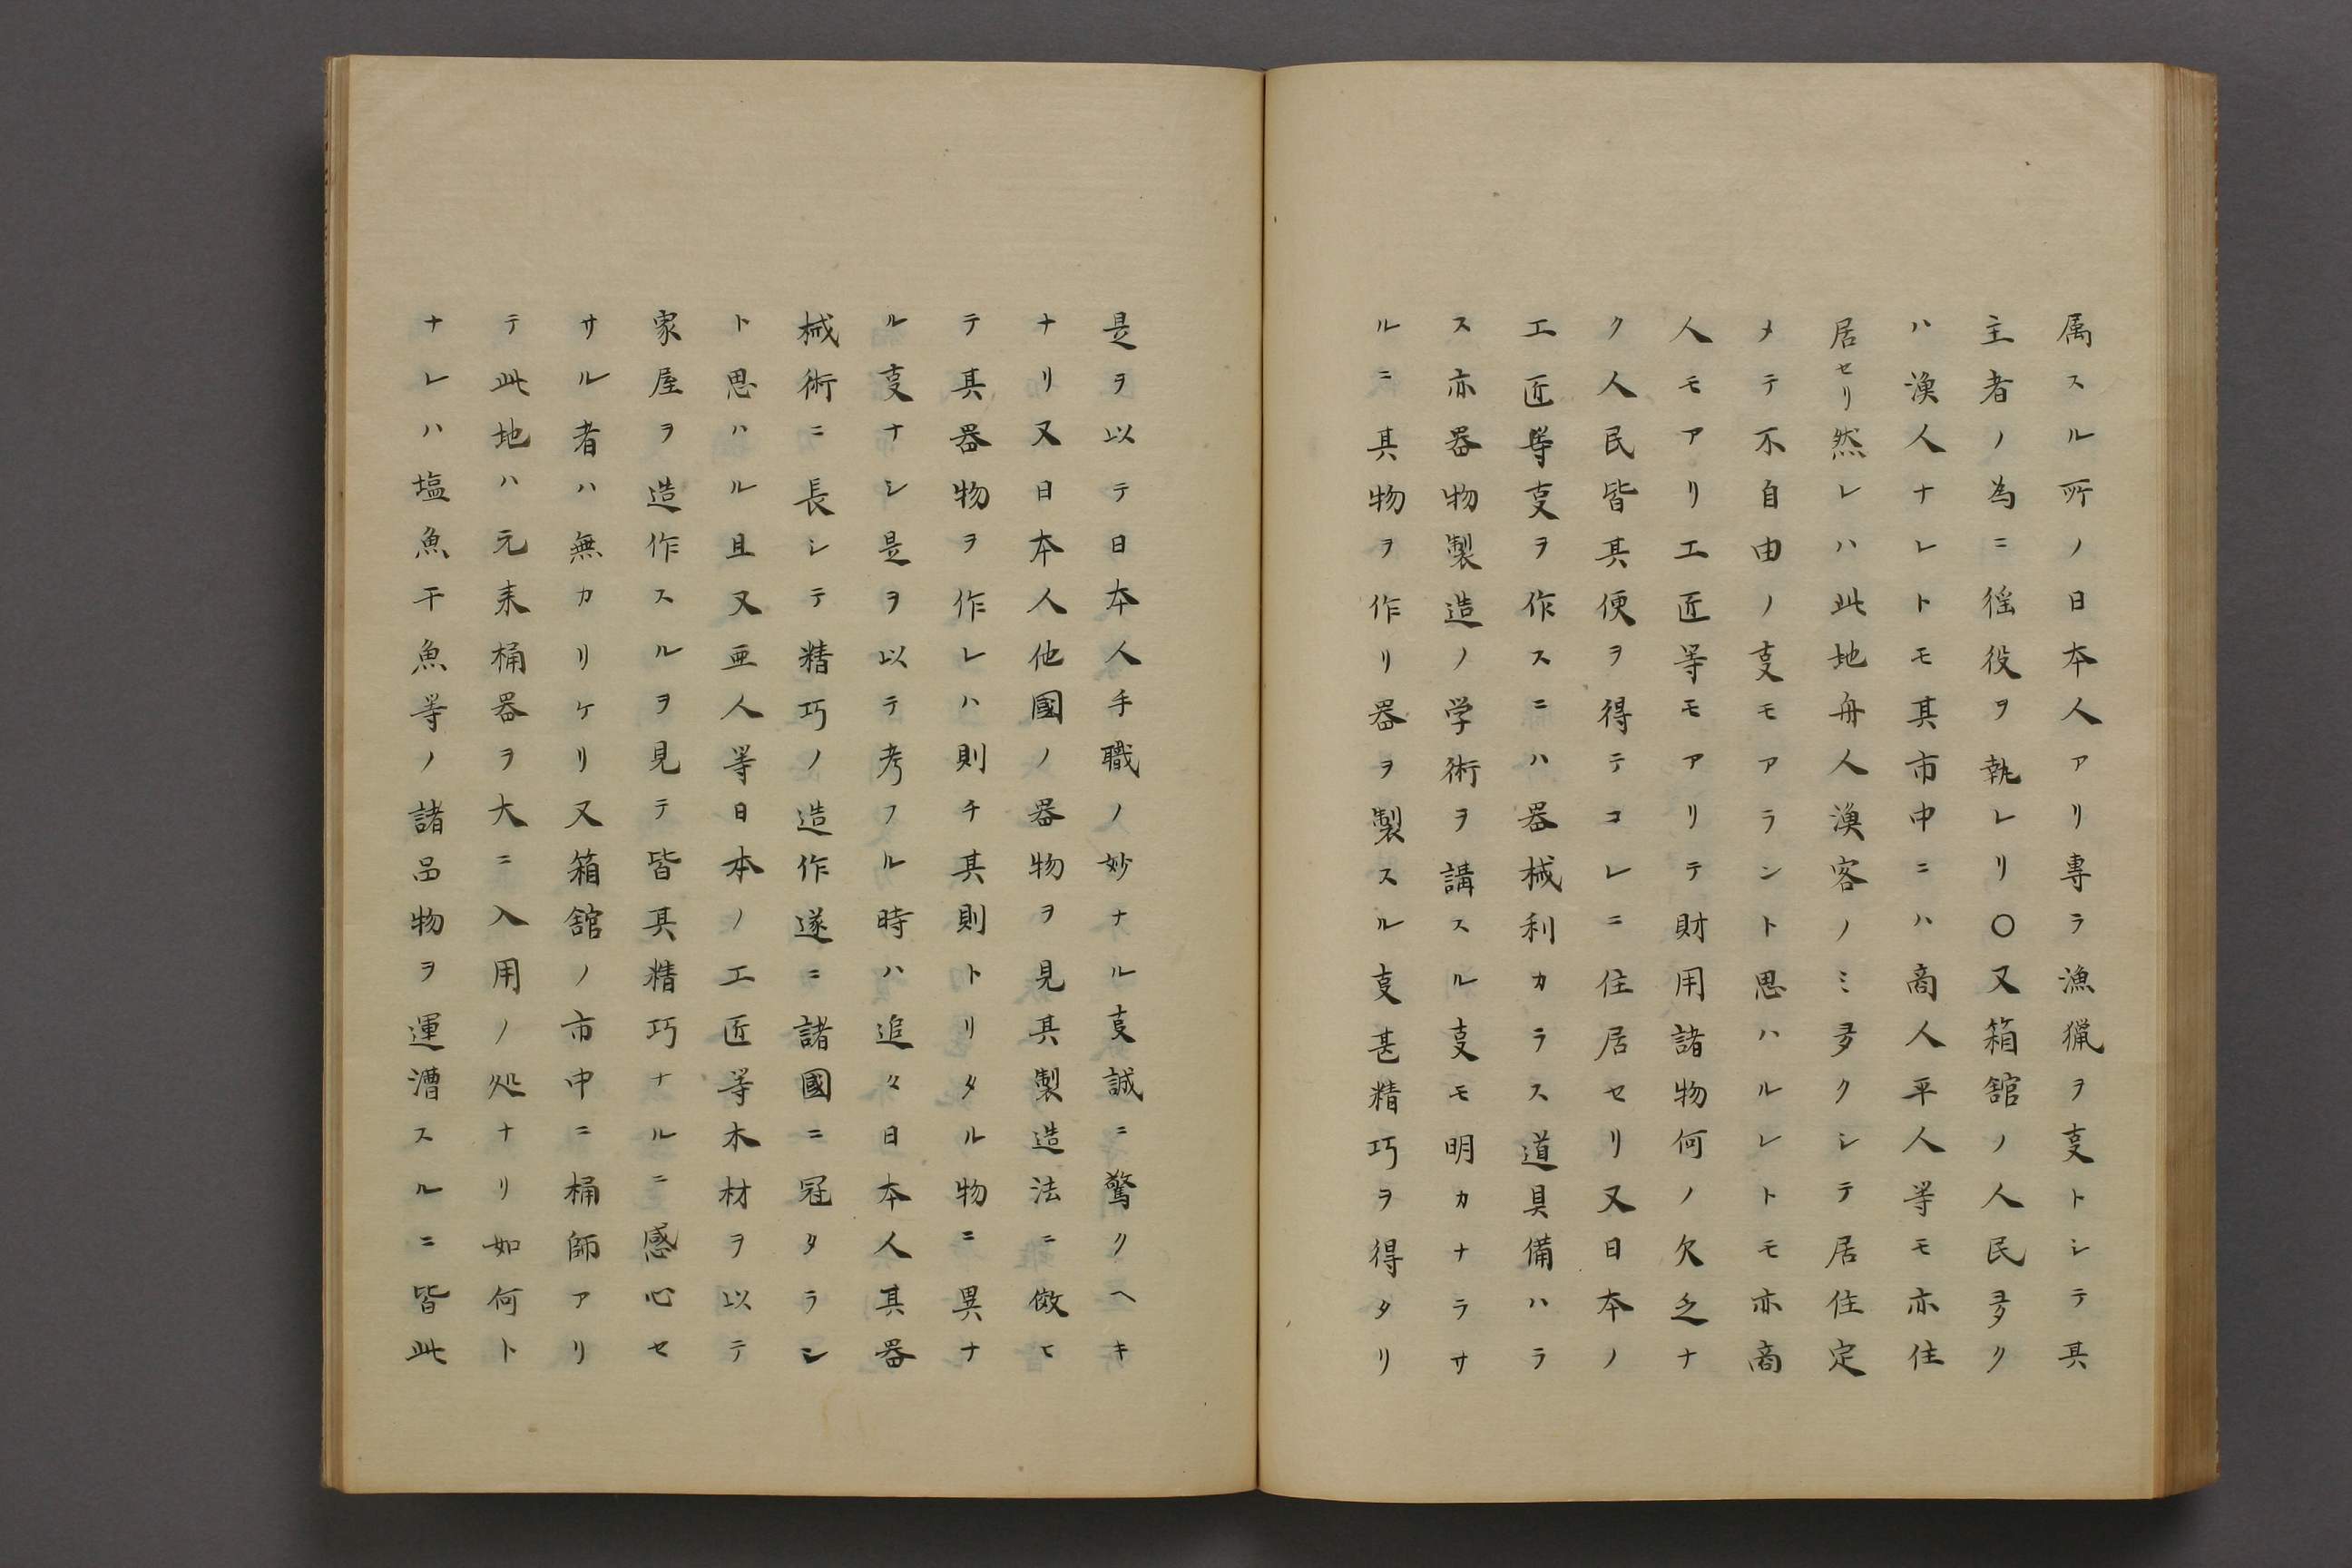 属スル所ノ日本人アリ專ラ漁猟ヲ叓トシテ其
主者ノ為ニ徭役ヲ執レリ〇又箱舘ノ人民多ク
ハ漁人ナレトモ其市中ニハ商人平人等モ亦住
居セリ然レハ此地舟人漁客ノミ多クシテ居住定
メテ不自由ノ叓モアラント思ハルレトモ亦商
人モアリ工匠等モアリテ財用諸物何ノ欠乏ナ
ク人民皆其便ヲ得テコレニ住居セリ又日本ノ
工匠等叓ヲ作スニハ器械利カラス道具備ハラ
ス亦器物製造ノ学術ヲ講スル叓モ明カナラサ
ルニ其物ヲ作リ器ヲ製スル叓甚精巧ヲ得タリ
是ヲ以テ日本人手職ノ妙ナル叓誠ニ驚クヘキ
ナリ又日本人他國ノ器物ヲ見其製造法ニ倣ヒ
テ其器物ヲ作レハ則チ其則トリタル物ニ異ナ
ル叓ナシ是ヲ以テ考フル時ハ追々日本人其器
械術ニ長シテ精巧ノ造作遂ニ諸國ニ冠タラン
ト思ハル且又亜人等日本ノ工匠等木材ヲ以テ
家屋ヲ造作スルヲ見テ皆其精巧ナルニ感心セ
サル者ハ無カリケリ又箱舘ノ市中ニ桶師アリ
テ此地ハ元来桶器ヲ大ニ入用ノ処ナリ如何ト
ナレハ塩魚干魚等ノ諸品物ヲ運漕スルニ皆此